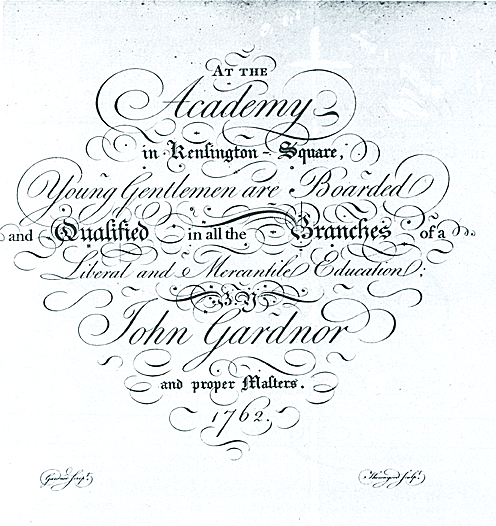 AT THE
Academy
in Kenſington - Square,
Young Gentlemen are Boarded
and Qualified in all the Branches of a
Liberal and Mercantile Education:
BY
John Gardnor
and proper Maſters.
1762.
Gardnor ſcripᵗ.
ſculpᵗ.